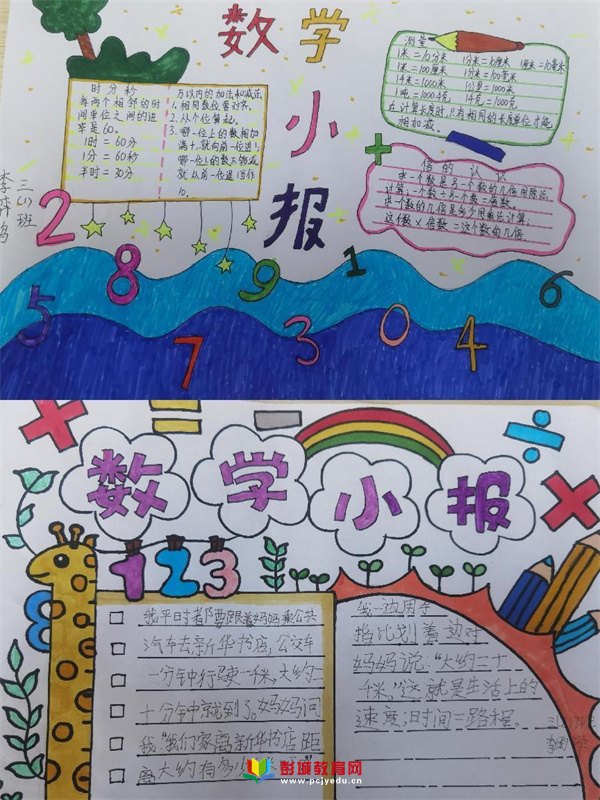 数学
小
报
时分秒
每两个相邻的时
间单位之间的进
率是60。
1时=60分
1分=60秒
半时=30分
万以内的加法和减法
1.相同数位要对齐。
2.从个位算起。
3.哪一位上的数相加
满十,就向前一位进1;
哪一位上的数不够减
就从前一位退1当作
10。
测量
1米=10分米 1分米=10厘米 1厘米=10毫米
1米=100厘米 1分米=100毫米
1千米=1000米 1公里=1000米
1吨=1000千克 1千克=1000克
在计算长度时,只有相同的长度单位才能
相加减。
倍的认识
求一个数是另一个数的几倍用除法
计算:一个数÷另一个数=倍数。
求一个数的几倍是多少用乘法计算;
这个数×倍数=这个数的几倍。
三(1)班
2
8
9
1
6
5
7
3
0
4
数学小报
123
8
我平时都要跟着妈妈乘公共
汽车去新华书店,公交车
一分钟行驶一千米,大约二
十分钟就到了。妈妈问
我:“我们家离新华书店距
离大约有多少
我一边用手
指比划着,一边对
妈妈说:“大约二十
千米。”这就是生活上的
速度×时间=路程。
彭城教育网
www.pcjyedu.cn